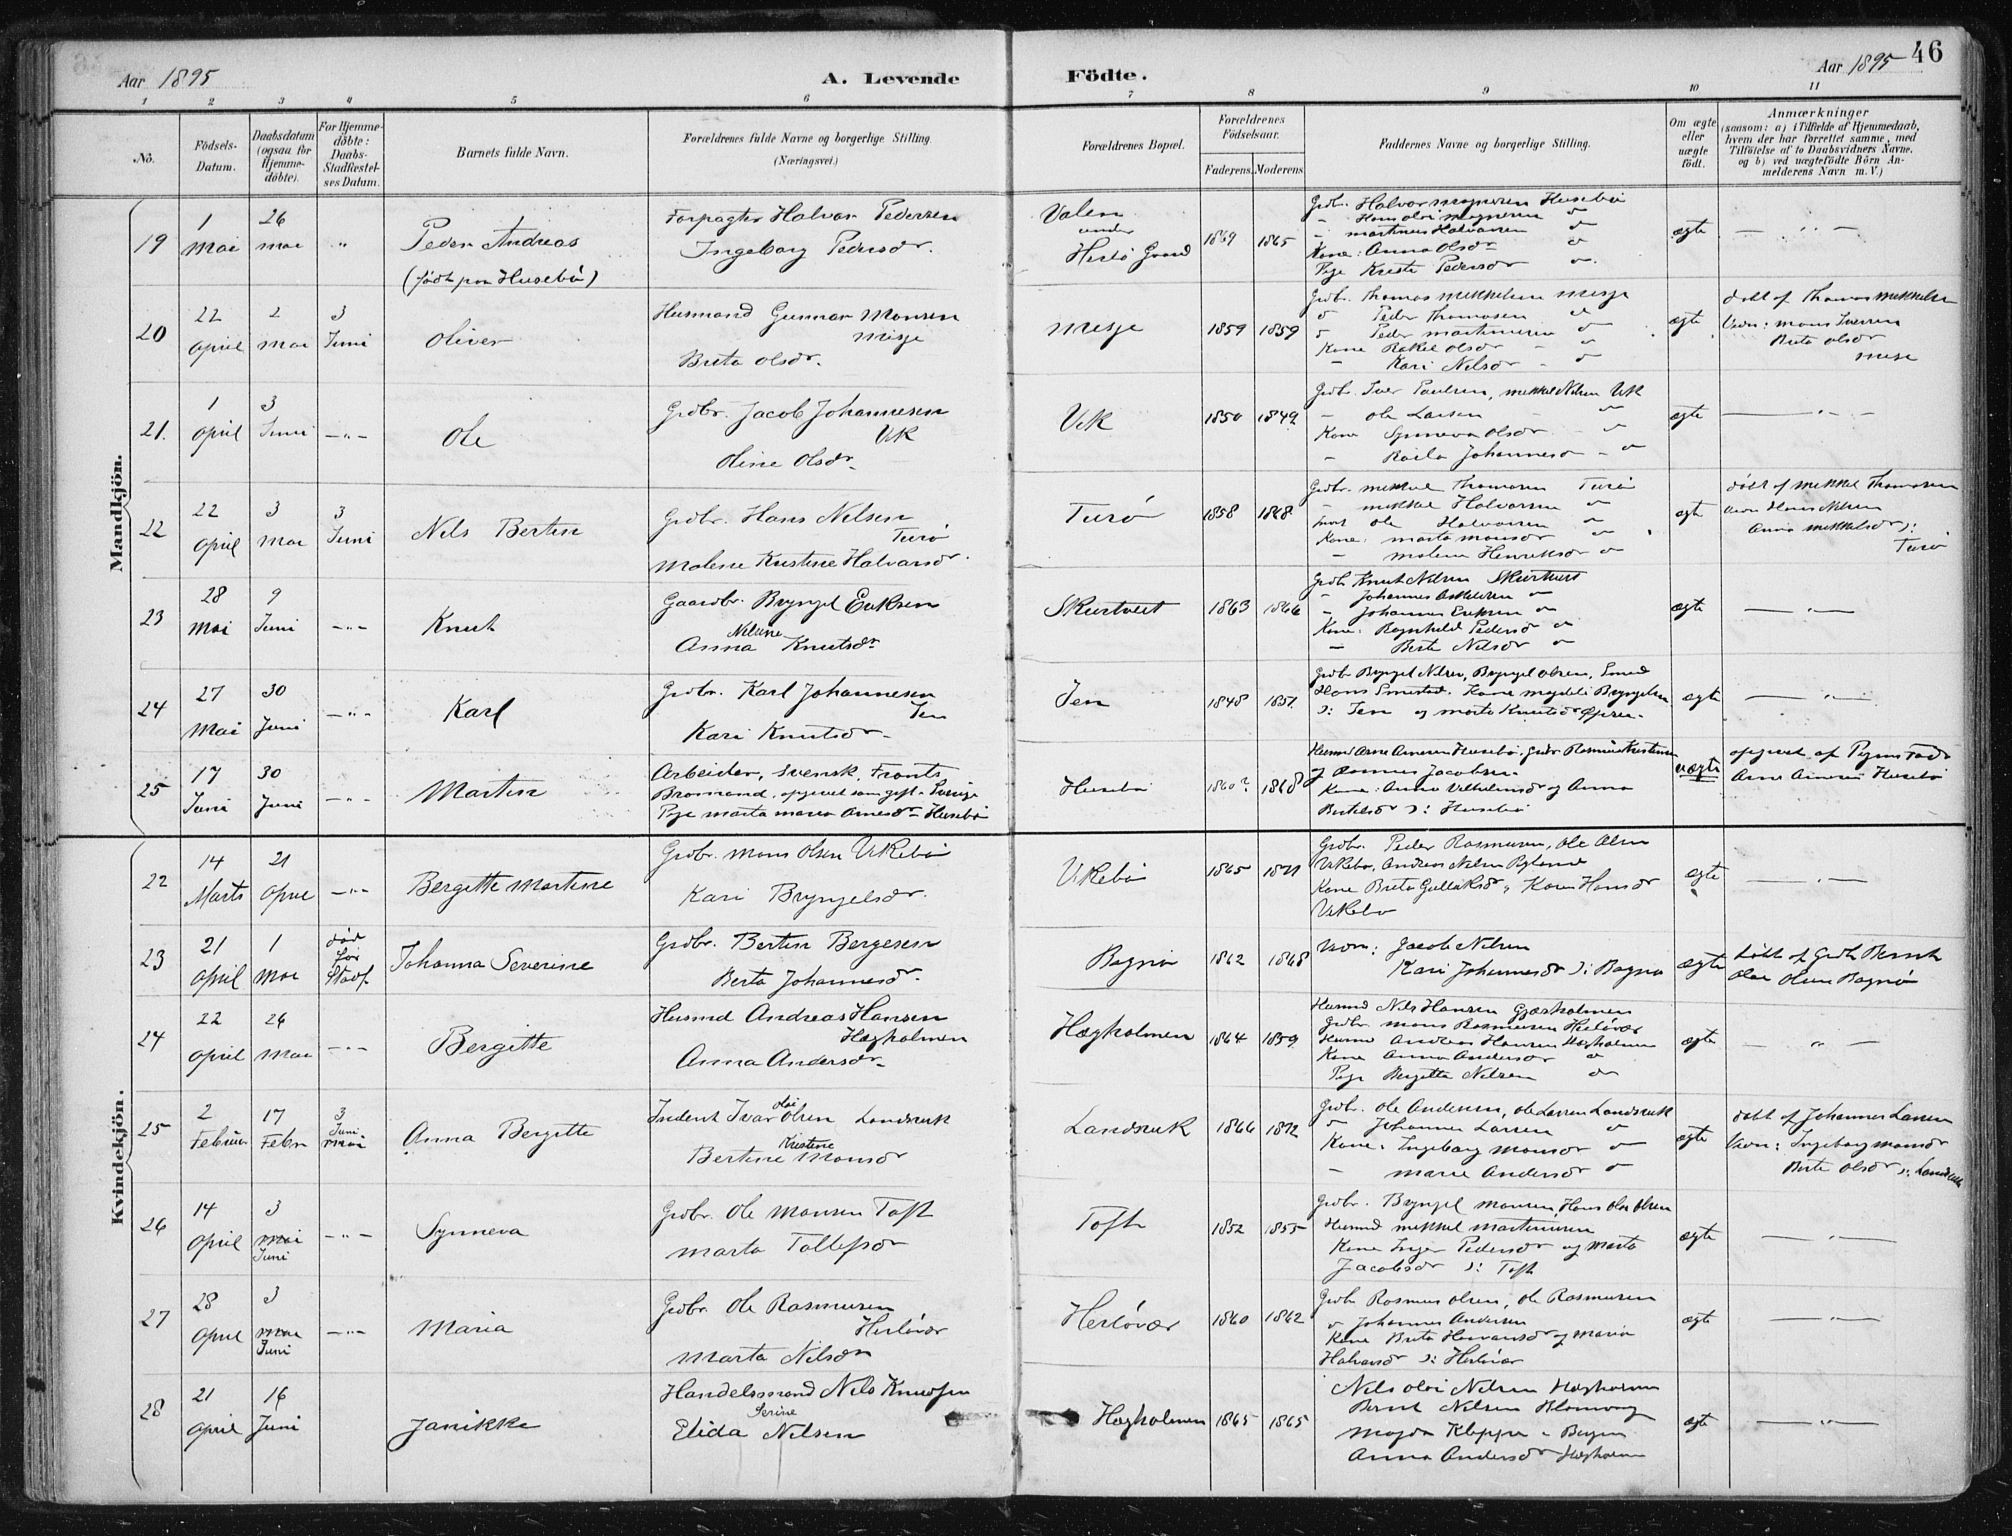 46
Aar 1895
A. Levende
Födte.
Aar 1895
1 2 3 4 5 6 7 8 9 10 11
No.
Födsels-Datum.
Daabsdatum (ogsaa for Hjemme-döbte).
For Hjemme-döbte: Daabs-Stadfæstel-ses Datum.
Barnets fulde Navn.
Forældrenes fulde Navne og borgerlige Stilling.
(Næringsvei.)
Forældrenes Bopæl.
Forældrenes Födselsaar.
Faderens. Moderens.
Faddernes Navne og borgerlige Stilling.
Om ægte eller uægte födt.
Anmærkninger
(saasom: a) i Tilfælde af Hjemmedaab, hvem der har forrettet samme, med Tilföielse af to Daabsvidners Navne, og b) ved uægtefödte Börn Anmelderens Navn m. V.)
Mandkjön.
19
1 Mai
26 Mai
Peder Andreas
(født paa Husebø)
Forpagter Halvor Pedersen
Ingeborg Pedersdr.
Valen under Herlø Gaard
1869 1865
Grdbr. Halvor Mogensen Husebø
Kone: Anna Olsdr
Pige Kristi Pedersdr
ægte
20
22 April
2 Mai
3 Juni
Oliver
Husmand Gunnar Monsen
Misje
Brita Olsdr.
Misje
1859 1859
Grdbr. Thomas Mikkelsen Misje
Peder Thomasen
Peder Martinusen
Kone Rakel Olsdr
Kari Nilsdr
ægte
døbt af Thomas Mikkelsen
Vidn: Mons Iversen
Brita Olsdr
Misje
21.
1 April
3 Juni
Ole
Grdbr. Jacob Johannesen
Vik
Oline Olsdr
Vik
1850 1849
Grdbr. Iver Paulsen, Mikkel Nilsen Vik
Ole Larsen
Kone Synneva Olsdr
Johannesdr
ægte
22
22 April
3 Mai
3 Juni
Nils Bertin
Grdbr. Hans Nilsen
Turø
Malene Kristine Halvorsdr.
Turø
1858 1868
Grdbr. Mikkel Thomasen Turø
Mikkel Halvorsen
Ole Halvorsen
Kone: Marta Monsdr
Malena Henriksdr
ægte
døbt af Mikkel Thomasen
Anna Mikkelsdr
Turø
23
28 Mai
9 Juni
Knut
Gaardbr. Bryngel Eriksen
Nilsine
Anna Knutsdr
Skurtveit
1863 1866
Grdbr Knut Nilsen Skurtveit
Johannes
Johannes Eriksen
Kone: Ragnhild Pedersd
Berta Nilsdr
ægte
24
27 Mai
30 Juni
Karl
Grdbr. Karl Johannesen
Jen
Kari Knutsdr
Jen
1848 1851
Grdbr Bryngel Nilsen, Bryngel Olsen, Smed
Hans Kone Magdeli Bryngelsen
Jen og Marta Knutsdr
ægte
25
17 Juni
30 Juni
Martin
Arbeider, svensk, Frants
opgivet som gift i Sverige
Pige Marta Maria Arnesdr Husebø
Husebø
1860? 1868
Husmd Arne Arnesen Husebø, Grdbr Rasmus Kristensen
og Rasmus Jacobsen
Kone: Anna Vilhelmsdr og Anna
Bertelsdr Husebø
uægte
opgivet af Pigens Fader
Arne Arnesen Husebø
Kvindekjön.
22
14 Marts
21 April
Bergitte Martine
Grdbr. Mons Olsen Vikebø
Kari Bryngelsdr.
Vikebø
1865 1871
Grdbr. Peder Rasmusen, Ole Olsen
Vikebø, Andreas Nilsen
Kone Brita Gullaksdr, Karen Hansdr
Vikebø
ægte
23
21 April
1 Mai
død før Stadf.
Johanna Severine
Grdbr. Bertin Bergesen
Berta Johannesdr
Bagnø
1862 1868
Vidn: Jacob Nilsen
Kari Johannesdr Bagnø
ægte
døbt af Grdb. Bernt
Olai Olsen Bagnø
24
22 April
26 Mai
Bergitte
Husmd Andreas Hansen
Hægholmen
Anna Andersdr
Hægholmen
1864 1859
Husmd Nils Hansen
Grdbr. Mons Rasmusen Herløvær
Husmd Andreas Hansen Hægholmen
Kone Anna Andersdr
Pige Bergitta Nilsen
ægte
25
2 Februar
17 Febr
3 Juni
Anna Bergitte
Inderst Ivar Olai Olsen Landsvik
Kristine
Bertine Monsdr
Landsvik
1866 1872
Grdbr. Ole Andersen, Ole Larsen Landsvik
Johannes Larsen
Kone: Ingeborg Monsdr
Marie Andersdr
ægte
døbt af Johannes Larsen
Vidn: Ingeborg Monsdr
Berta Olsdr Landsvik
26
14 April
3 Juni
Synneva
Grdbr. Ole Monsen Toft
Marta Tollefsdr
Toft
1852 1855
Grdbr. Bryngel Monsen, Hans Olai Olsen
Husmd Mikkel Martinusen
Kone Inger Pedersdr og Marta
Jacobsdr Toft
ægte
27
28 April
3 Juni
Maria
Grdbr. Ole Rasmusen
Herløvær
Marta Nilsdr
Herløvær
1860 1862
Grdb Rasmus Olsen, Ole Rasmusen
Johannes Andersen
Kone Brita og Maria
Halvorsdr Herløvær
ægte
28
21 April
16 Juni
Janikke
Handelsmand Nils Knudsen
Serine
Elida Nilsen
Hægholmen
1865 1865
Nils Olai Nilsen Hægholmen
Bernt Nilsen Blomvaag
Magda Kleppe Bergen
Anna Andersdr Hægholmen
ægte